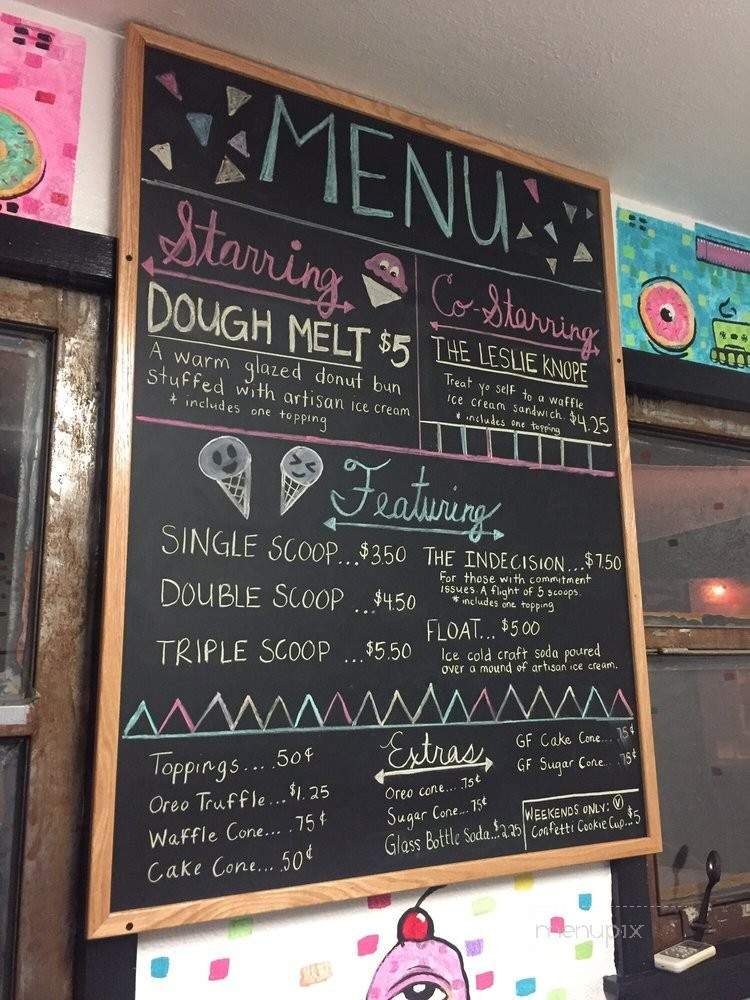 MENU
Starring
DOUGH MELT $5
A warm glazed donut bun
stuffed with artisan ice cream
* includes one topping
Co-Starring
THE LESLIE KNOPE
Treat yo self to a waffle
ice cream sandwich. $4.25
* includes one topping
Featuring
SINGLE SCOOP...$3.50
DOUBLE SCOOP ...$4.50
TRIPLE SCOOP ...$5.50
THE INDECISION...$7.50
For those with commitment
issues. A flight of 5 scoops.
* includes one topping
FLOAT... $5.00
Ice cold craft soda poured
over a mound of artisan ice cream.
Toppings.... .50¢
Oreo Truffle...$1.25
Waffle Cone... .75¢
Cake Cone.... .50¢
Extras
Oreo cone... .75¢
Sugar Cone... .75¢
Glass Bottle Soda...$2.25
GF Cake Cone... .75¢
GF Sugar Cone... .75¢
WEEKENDS ONLY: Ⓥ
Confetti Cookie Cup...$5
menupix